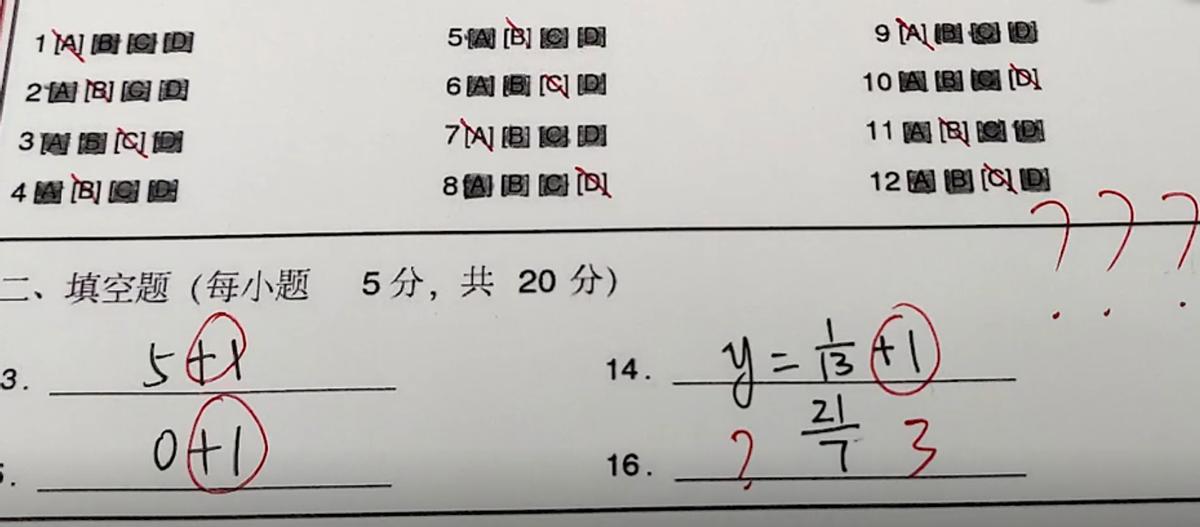 1 [A] [B] [C] [D] 5 [A] [B] [C] [D] 9 [A] [B] [C] [D]
2 [A] [B] [C] [D] 6 [A] [B] [C] [D] 10 [A] [B] [C] [D]
3 [A] [B] [C] [D] 7 [A] [B] [C] [D] 11 [A] [B] [C] [D]
4 [A] [B] [C] [D] 8 [A] [B] [C] [D] 12 [A] [B] [C] [D]
? ? ?
二、填空题（每小题 5分，共 20 分）
3. 5+1 14. y = 1/13 +1
5. 0+1 16. ? 21/7 3